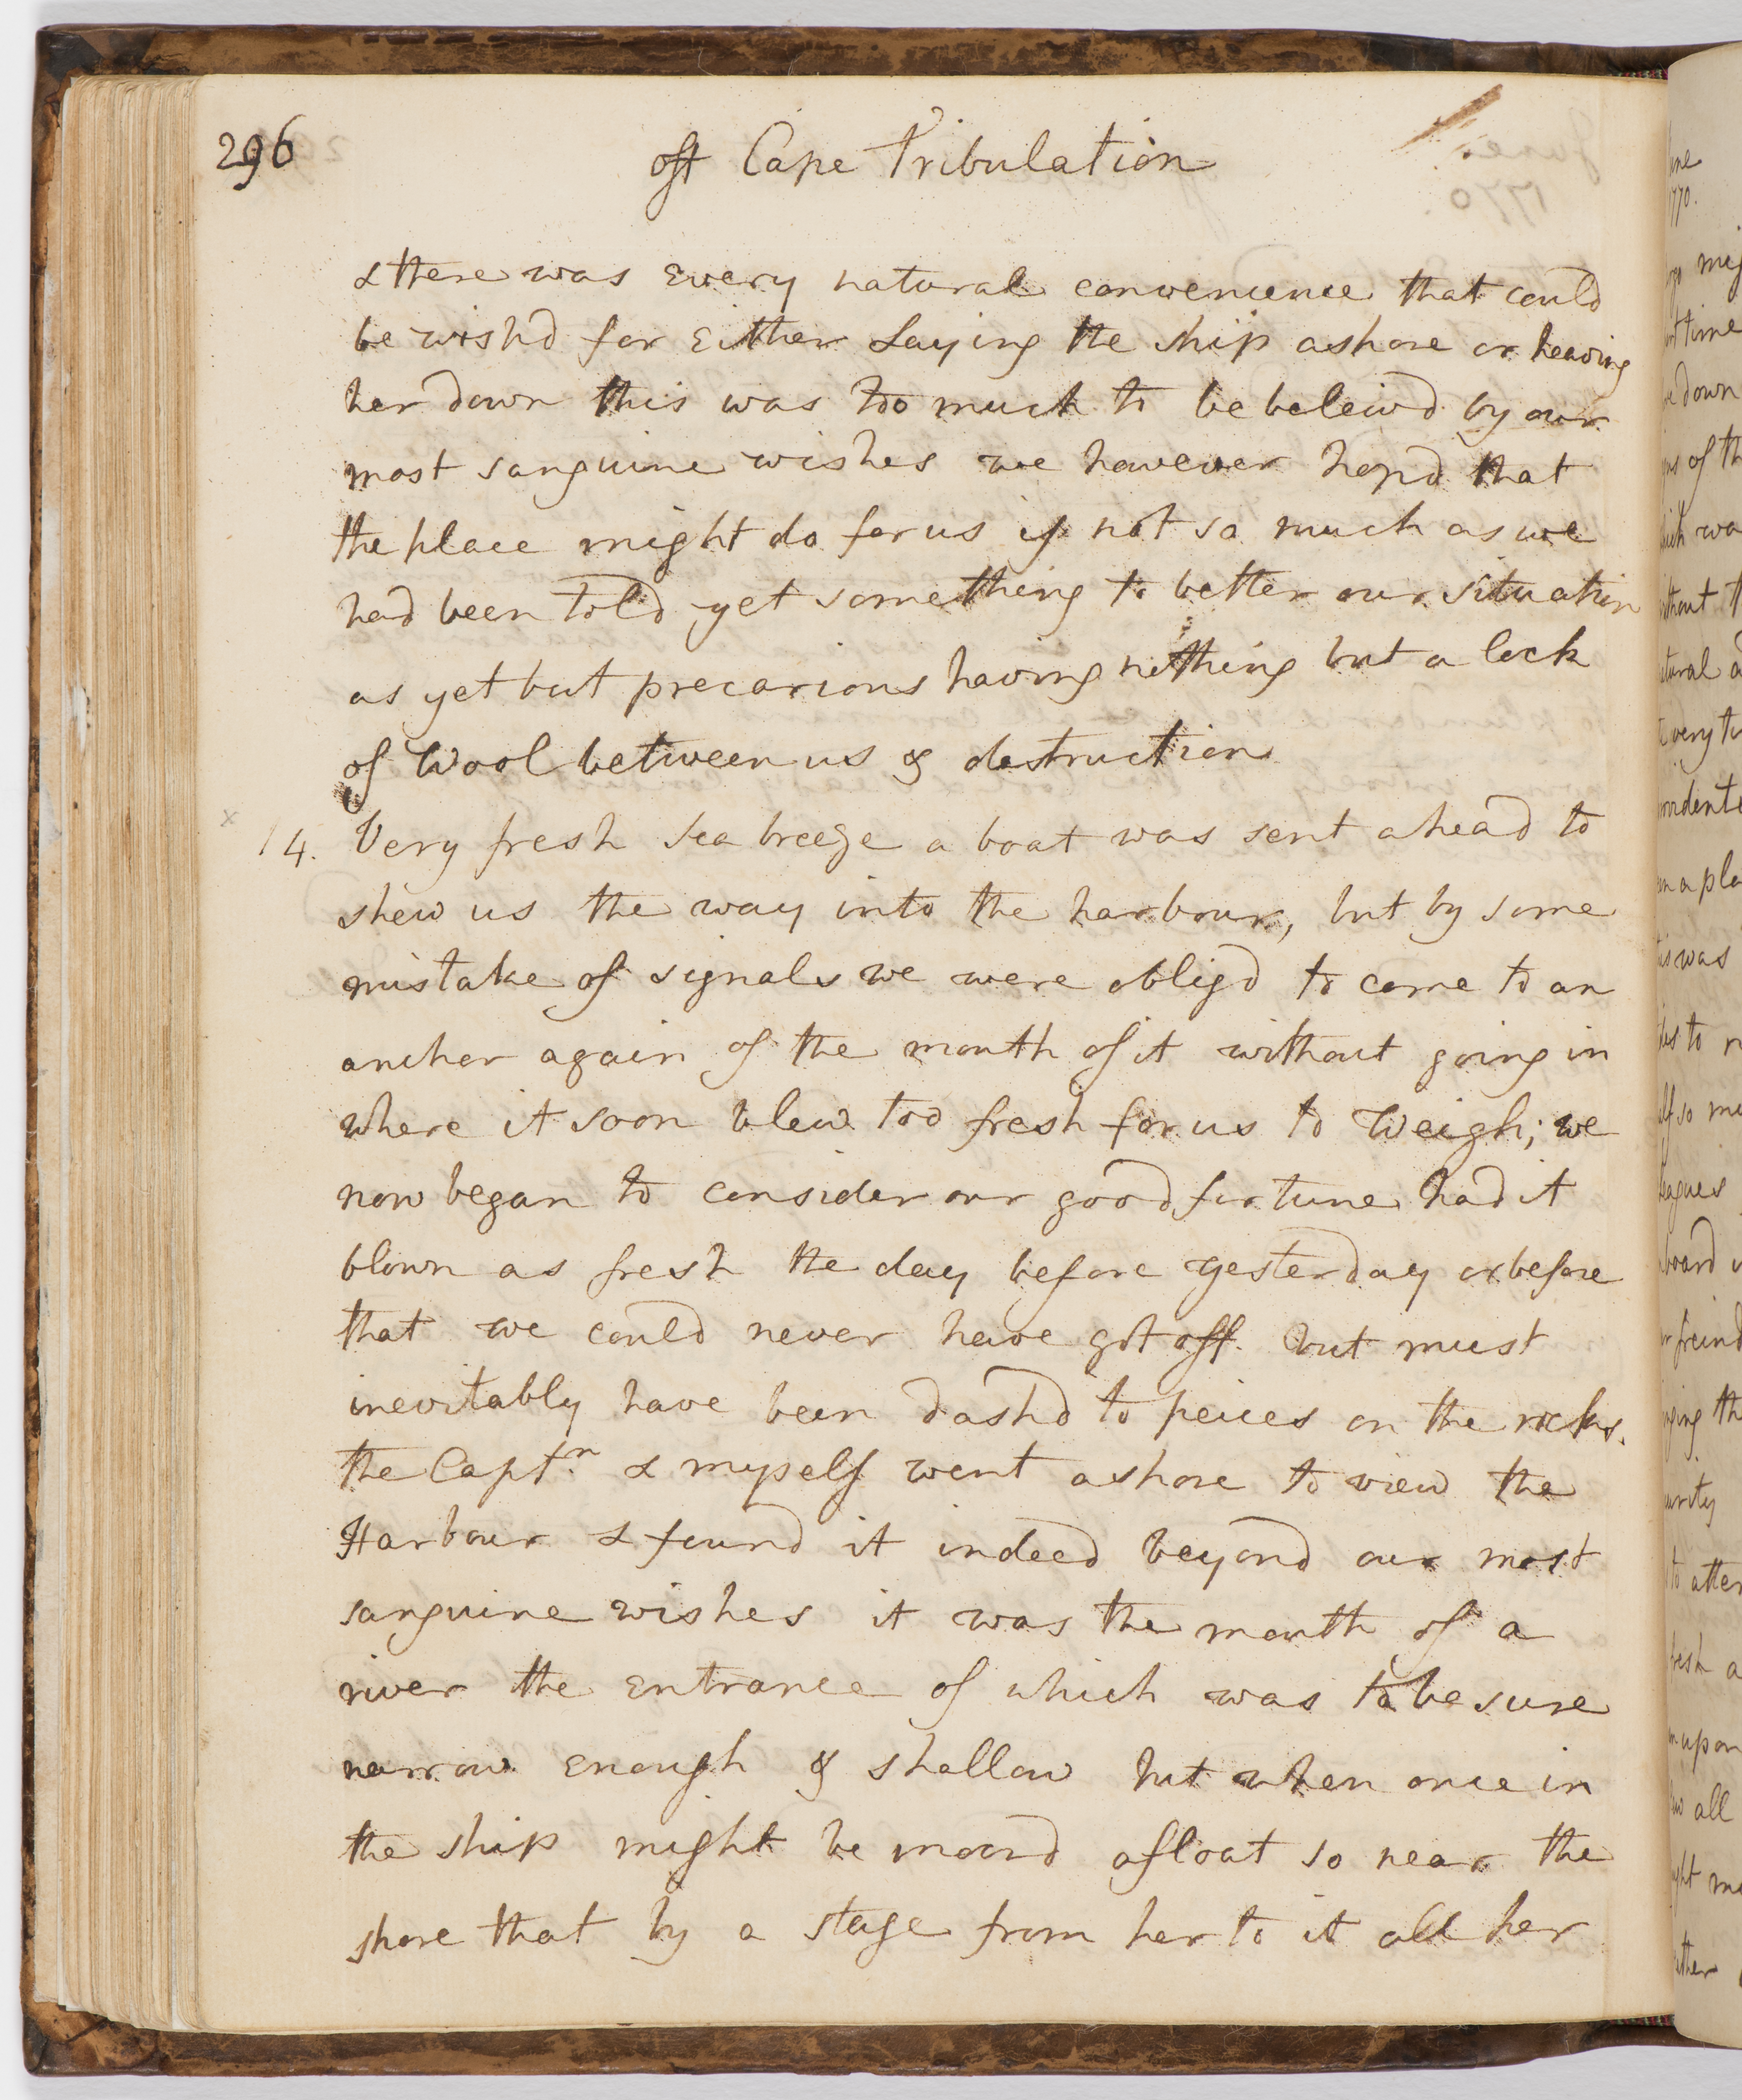 296
off Cape Tribulation
& there was Every natural convenience that could
be wish'd for Either Laying the ship ashore or heaving
her down this was too much to be beleivd by our
most sanguine wishes we however hopd that
the place might do for us if not so much as we
had been told yet something to better our situation
as yet but precarious having nothing but a lock
of Wool between us & destruction
14. Very fresh Sea breeze a boat was sent ahead to
shew us the way into the harbour, but by some
mistake of signals we were obligd to come to an
ancher again of the mouth of it without going in
where it soon blew too fresh for us to Weigh; we
now began to consider our good fortune had it
blown as fresh the day before yesterday or before
that we could never have got off but must
inevitably have been dashd to peices on the rocks.
the Captn. & myself went ashore to view the
Harbour & found it indeed beyond our most
sanguine wishes it was the mouth of a
river the Entrance of which was to be sure
narrow Enough & shallow but when once in
the ship might be moord afloat so near the
shore that by a stage from her to it all her
1770.
time
down
of
was
all